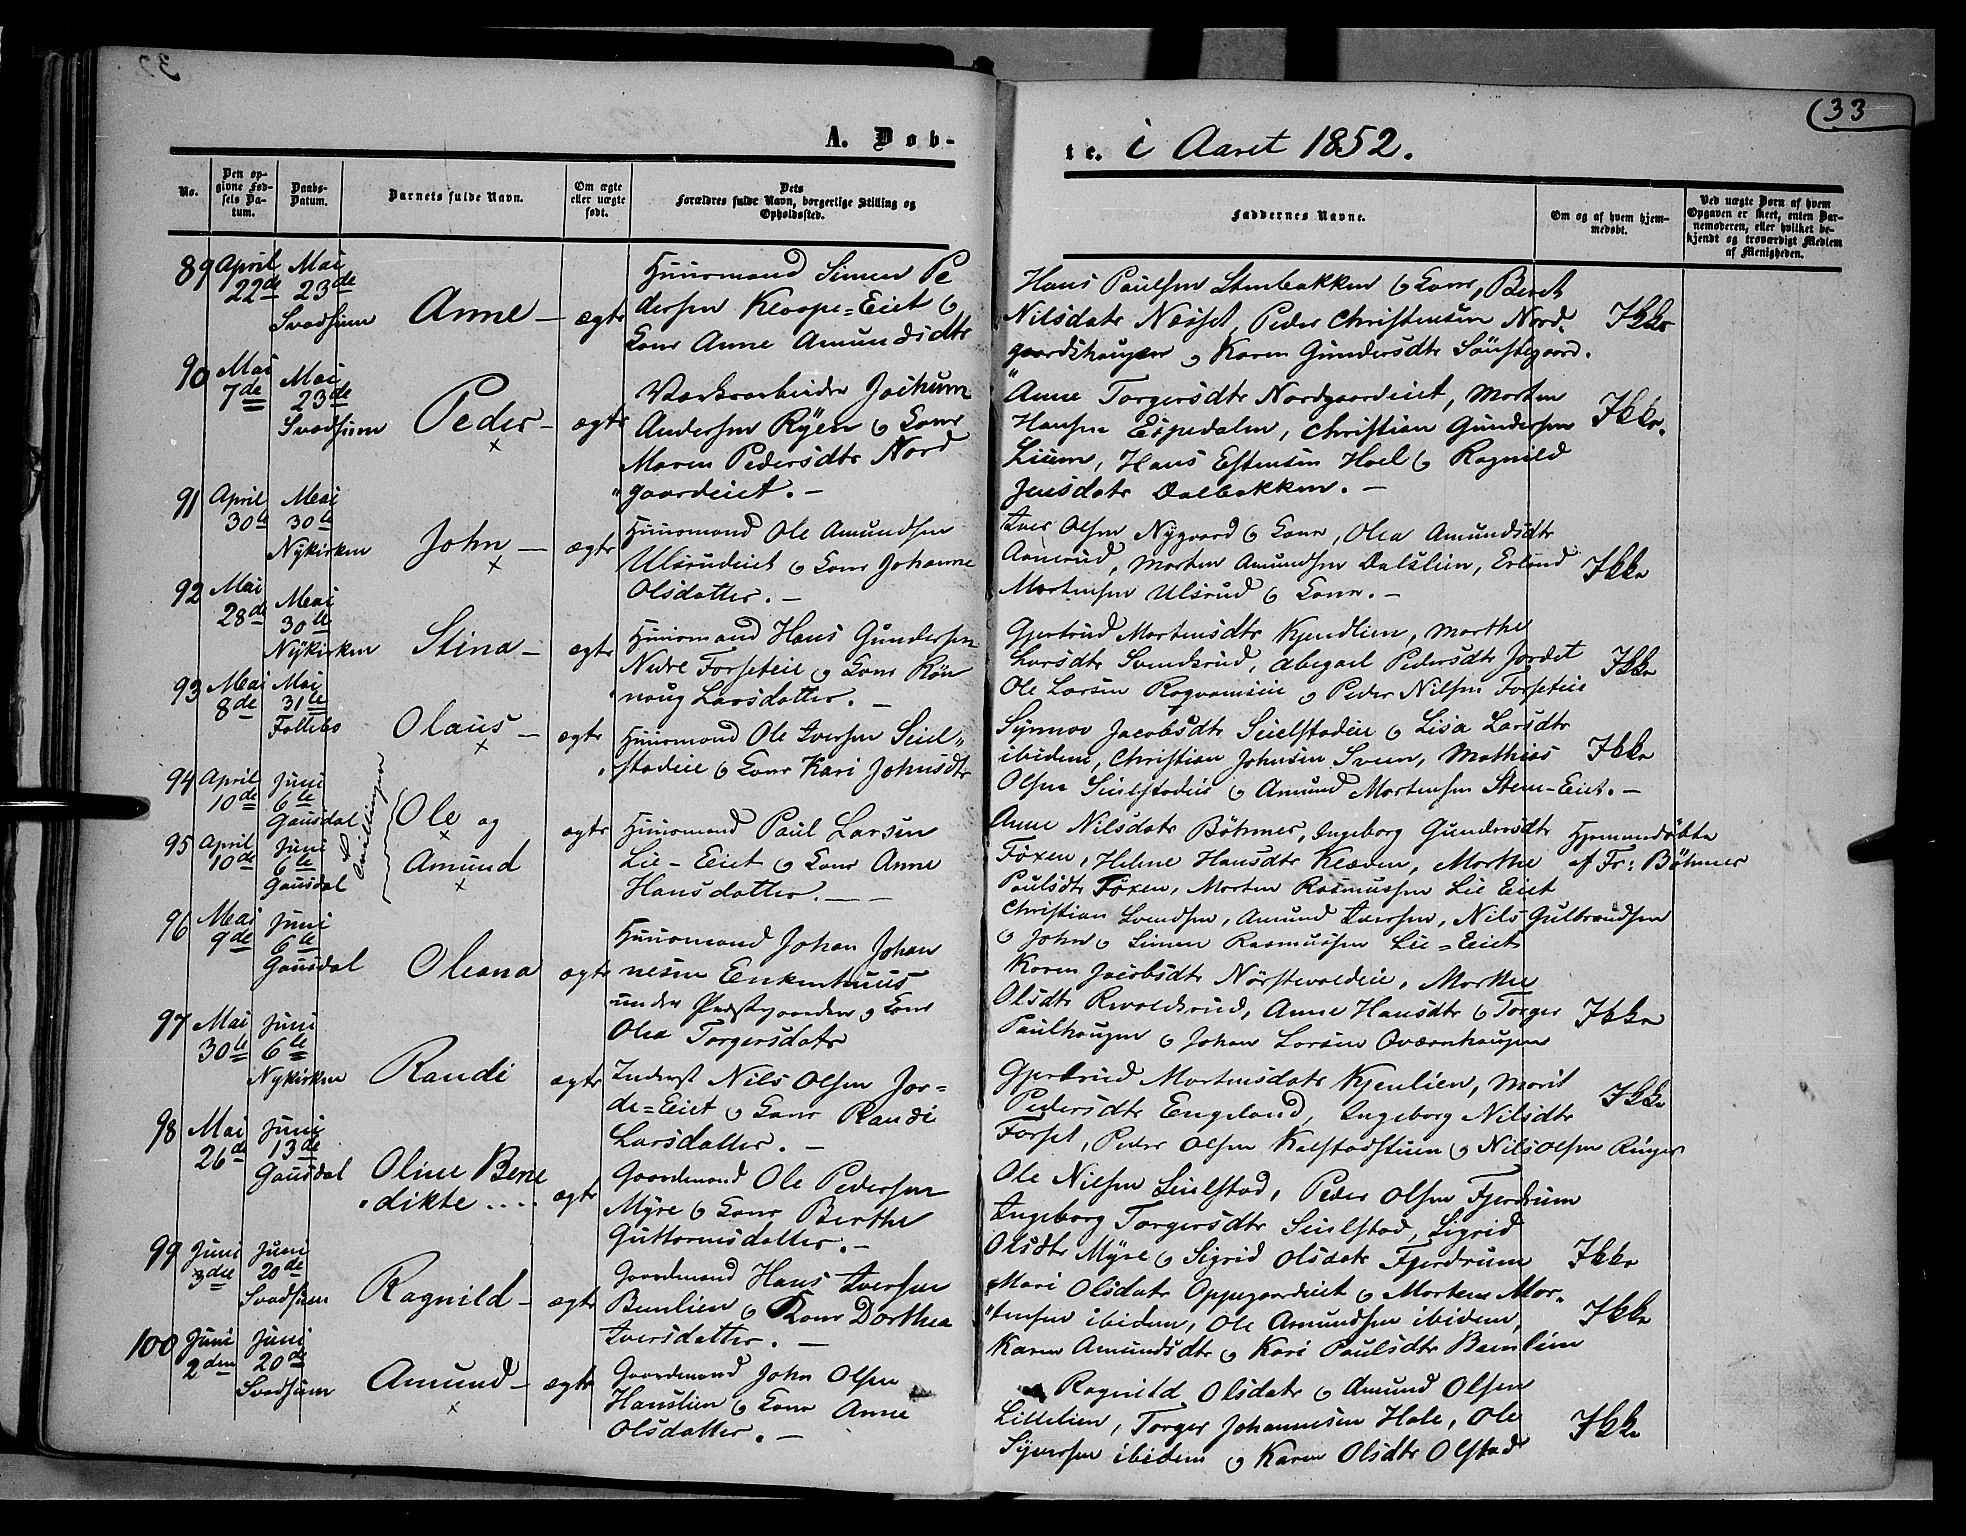 (33
A. Døb-
te. i Aaret 1852.
No.
Den op-
givne Fød-
sels Da-
tum.
Daabs-
Datum.
Barnets fulde Navn.
Om ægte
eller uægte
født.
Dets
Forældres fulde Navn, borgerlige Stilling og
Opholdssted.
Faddernes Navne.
Om og af hvem hjem-
medøbt.
Ved uægte Børn af hvem
Opgaven er skeet, enten Bar-
nemoderen, eller hvilket be-
kjendt og troværdigt Medlem
af Menigheden.
89 April 22de
Mai 23de
Svadsum
Anne –
ægte
Huusmand Simen Pe
dersen Kloppe=Eiet &
Kone Anne Amundsdtr
Hans Paulsen Stenbakken & Kone, Beret
Nilsdatr Næsset, Peder Christensen Nord-
gaardshaugen & Karen Gundersdtr Sønstegaard.
Ikke
90 Mai 7de
Mai 23de
Svadsum
Peder –
x
ægte
Værksarbeider Jochum
Andersen Ryen & Kone
Maren Pedersdtr Nord
gaardeiet. –
Anne Torgersdtr Nordgaardeiet, Morten
Hansen Espedalen, Christian Gundersen
Lium, Hans Estensen Hoel & Ragnild
Jensdatr Dalbakken. –
Ikke.
91 April 30te
Mai 30te
Nykirken
John –
x
ægte
Huusmand Ole Amundsen
Ulsrudeiet & Kone Johanne
Olsdatter. –
Iver Olsen Nygaard & Kone, Olea Amundsdtr
Aanerud, Morten Amundsen Dalslien, Erland
Mortensen Ulsrud & Kone. –
Ikke
92 Mai 28de
Mai 30te
Nykirken
Stina –
ægte
Huusmand Hans Gundersen
Nedre Forseteie & Kone Røn
noug Larsdatter. –
Gjertrud Mortensdtr Kjendlien, Marthe
Larsdtr Svendsrud, Abegael Pedersdtr Jordet
Ole Larsen Rogvamseie & Peder Nilsen Forseteie
Ikke
93 Mai 8de
Mai 31te
Follebo
Olaus –
x
ægte
Huusmand Ole Iversen Seiel-
stadeie & Kone Kari Johnsdtr
Synnov Jacobsdtr Seielstadeie & Lisa Larsdtr
ibidem, Christian Johnsen Sveen, Mathias
Olsen Seielstadeie & Amund Mortensen Steen-Eiet. –
Ikke
94 April 10de
Juni 6te
Gausdal
Tvillinger
Ole og
x
95 April 10de
Juni 6te
Gausdal
Amund
x
ægte
Huusmand Paul Larsen
Lie-Eiet & Kone Anne
Hansdatter. – –
Anne Nilsdatr Böhmer, Ingeborg Gundersdtr
Føxen, Helene Hansdtr Kleven, Marthe
Paulsdtr Føxen, Morten Rasmussen Lie Eiet
Christian Svendsen, Amund Iversen, Nils Gulbrandsen
& John & Simen Rasmussen Lie=Eiet
Hjemmedøbte
af Fr: Böhmer
96 Mai 9de
Juni 6te
Gausdal
Oleana
ægte
Huusmand Johan Johan
nesen Enkenhuus
under Præstegaarden & Kone
Olea Torgersdatr
Karen Jacobsdtr Nørstevoldeie, Marthe
Olsdtr Revoldsrud, Anne Hansdtr & Torger
Paulhaugen & Johan Larsen Qværnhaugen
Ikke
97 Mai 30te
Juni 6te
Nykirken
Randi
ægte
Inderst Nils Olsen Jor-
de=Eiet & Kone Randi
Larsdatter. –
Gjertrud Mortensdatr Kjenlien, Marit
Pedersdtr Engeland, Ingeborg Nilsdtr
Forset, Peder Olsen Kalstadstuen & Nils Olsen Ringer
Ikke
98 Mai 26de
Juni 13de
Gausdal
Oline Bene
dikte ....
ægte
Gaardmand Ole Pedersen
Myre & Kone Berthe
Guttormsdatter. –
Ole Nilsen Seielstad, Peder Olsen Fjerdrum
Ingeborg Torgersdtr Seielstad, Sigrid
Olsdtr Myre & Sigrid Olsdatr Fjerdrum
Ikke
99 Juni 3die
Juni 20de
Svadsum
Ragnild –
ægte
Gaardmand Hans Iversen
Benlien & Kone Dorthea
Iversdatter. –
Mari Olsdatr Oppegaardeiet & Morten Mor-
tensen ibidem, Ole Amundsen ibidem,
Karen Amundsdtr & Kari Paulsdtr Benlien
Ikke
100 Juni 2den
Juni 20de
Svadsum
Amund –
x
ægte
Gaardmand John Olsen
Hanslien & Kone Anne
Olsdatter. –
Ragnild Olsdatr & Amund Olsen
Lillelien, Torger Johannesen Hole, Ole
Syversen ibidem & Karen Olsdtr Olstad
Ikke